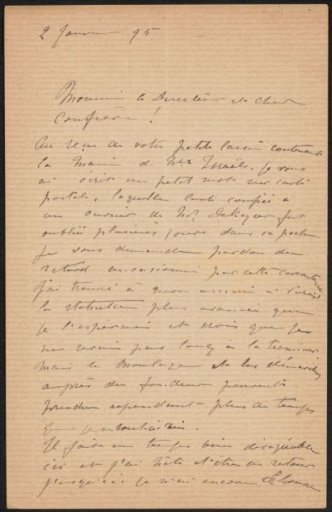 2 Janvier 95
Monsieur le Directeur et cher
Confrère !
Au reçu de votre petite caisse contenant
la main de Mr Israëls, je vous
ai écrit un petit mot sur carte
postale, laquelle carte confiée à
un ouvrier de Mr
oublié plusieurs jours dans sa poche
Je vous demande pardon du
retard occasionné par cette
j'ai trouvé à mon arrivée à
la statuette plus avancée que
je l'espérais et crois que je
ne serais pas long à la terminer
mais le moulage et les démarches
auprès du fondeur peuvent
prendre cependant plus de temps
que je
Il fait un temps bien désagréable
ici et j'ai hâte d'être de retour